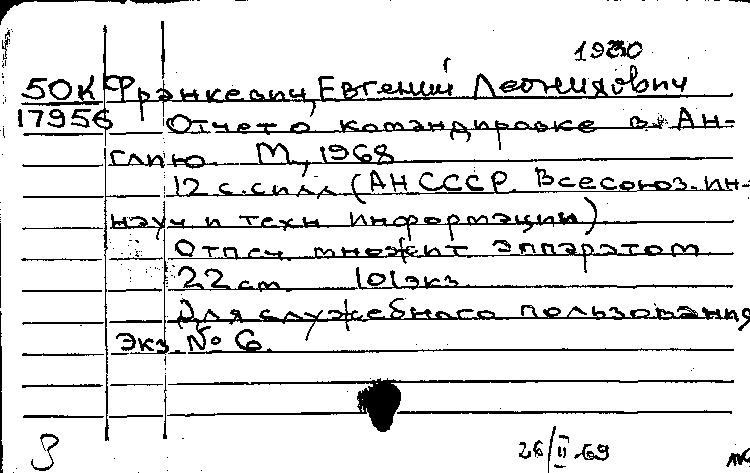 1930
50К Франкевич, Евгений Леонидович
17956 Отчет о командировке в Ан-
глию. М., 1968
12 с. силл (АН СССР. Всесоюз. ин-
науч и техн информации)
Отпеч. множит аппаратом
22 см. 101 экз.
Для служебного пользования
экз. № 6.
26/II-69